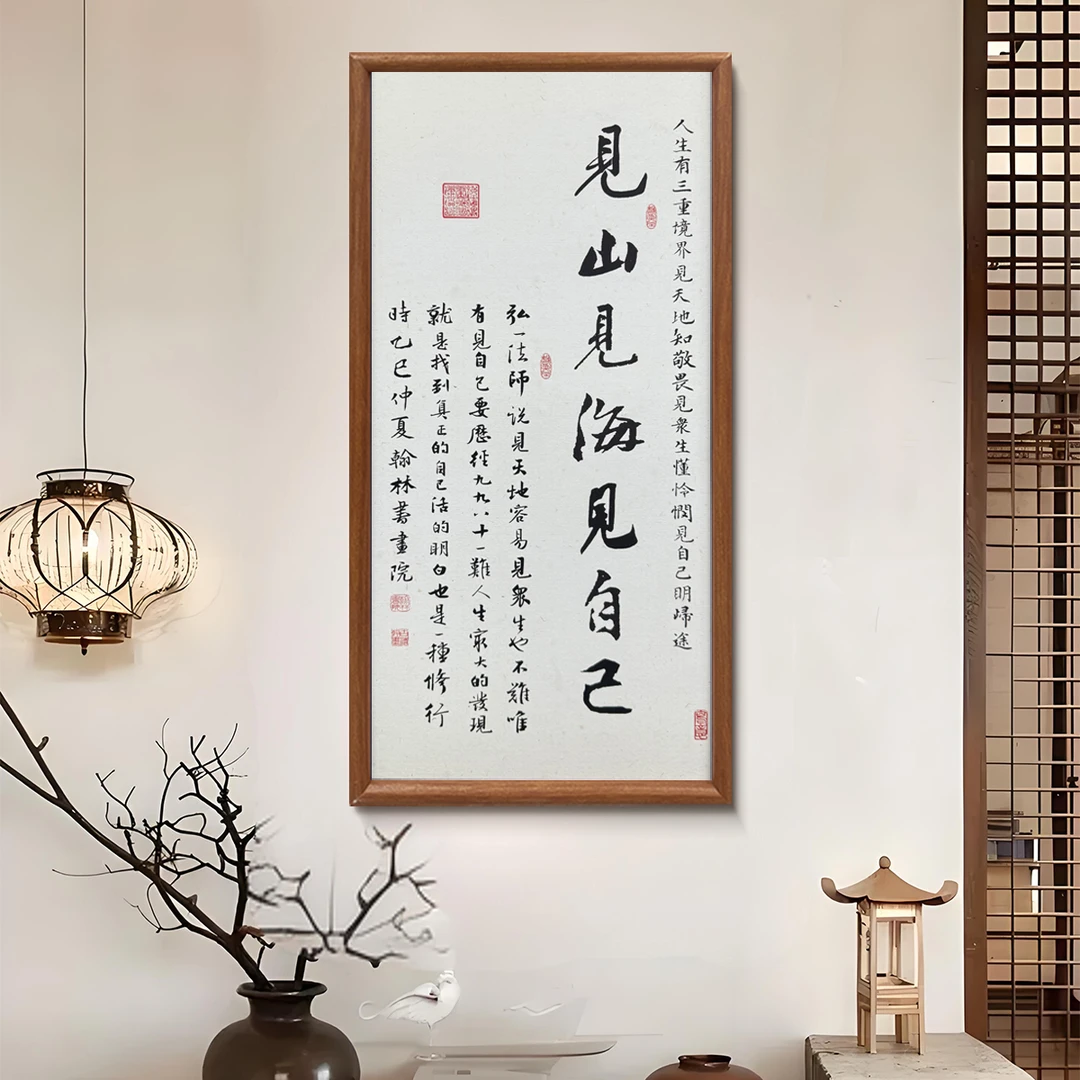 人生有三重境界見天地知敬畏見衆生懂怜憫見自己明歸途
見山見海見自己
弘一法師说見天地容易見衆生也不難唯
有見自己要歷經九九八十一難人生最大的發現
就是找到真正的自己活的明白也是一種修行
時乙巳仲夏翰林書畫院